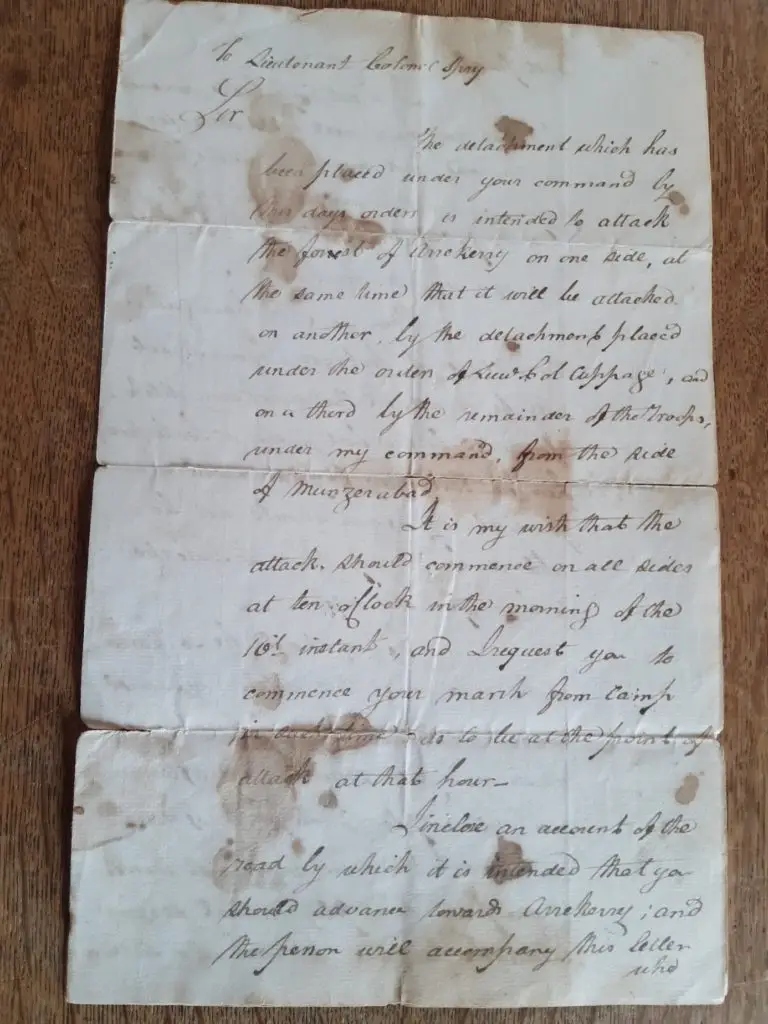 To Lieutenant Colonel Spry
Sir
The detachment which has
been placed under your command by
this days orders is intended to attack
the forest of Arrekerry on one side, at
the same time that it will be attacked
on another, by the detachment placed
under the orders of Lieut. Col Cuppage, and
on a third by the remainder of the Troops,
under my command, from the side
of Munzerabad
It is my wish that the
attack should commence on all sides
at ten o'Clock in the morning of the
16th instant, and I request you to
commence your march from Camp
in such time as to be at the point of
attack at that hour —
I inclose an account of the
road by which it is intended that you
should advance towards Arrekerry; and
the person will accompany this letter
who